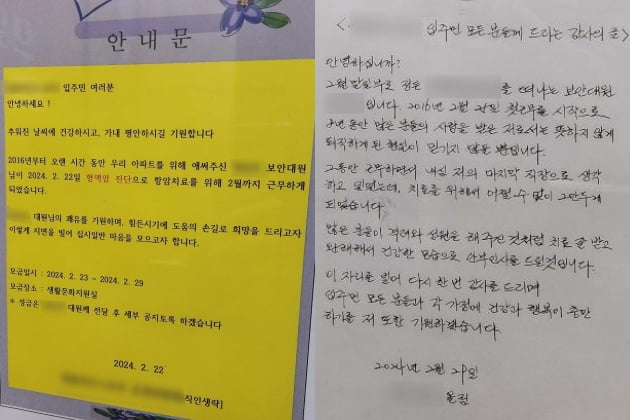 안내문
입주민 여러분
안녕하세요 !
추워진 날씨에 건강하시고, 가내 평안하시길 기원합니다
2016년부터 오랜 시간 동안 우리 아파트를 위해 애써주신 보안대원
님이 2024. 2. 22일 혈액암 진단으로 항암치료를 위해 2월까지 근무하게
되었습니다.
대원님의 쾌유를 기원하며, 힘든시기에 도움의 손길로 희망을 드리고자
이렇게 지면을 빌어 십시일반 마음을 모으고자 합니다.
모금일시 : 2024. 2. 23 ~ 2024. 2. 29
모금장소 : 생활문화지원실
* 성금은 대원께 전달 후 세부 공지토록 하겠습니다
2024. 2. 22
직인생략]
< 입주민 모든 분들께 드리는 감사의 글>
안녕하십니까?
2월 말일부로 정든 를 떠나는 보안대원
입니다. 2016년 2월 첫근무를 시작으로
8년 동안 많은 분들의 사랑을 받은 저로서는 뜻하지 않게
퇴직하게 된 현실이 믿기지 않을 뿐입니다.
그동안 근무하면서 내심 저의 마지막 직장으로 생각
하고 있었는데, 치료를 위해서 어쩔 수 없이 그만두게
되었습니다.
많은 분들이 격려와 성원을 해 주신 것처럼 치료 잘 받고
완쾌해서 건강한 모습으로 안부인사를 드릴것입니다.
이 자리를 빌어 다시 한 번 감사를 드리며
입주민 모든 분들과 각 가정에 건강과 행복이 충만
하기를 저 또한 기원하겠습니다.
2024년 2월 29일
올림